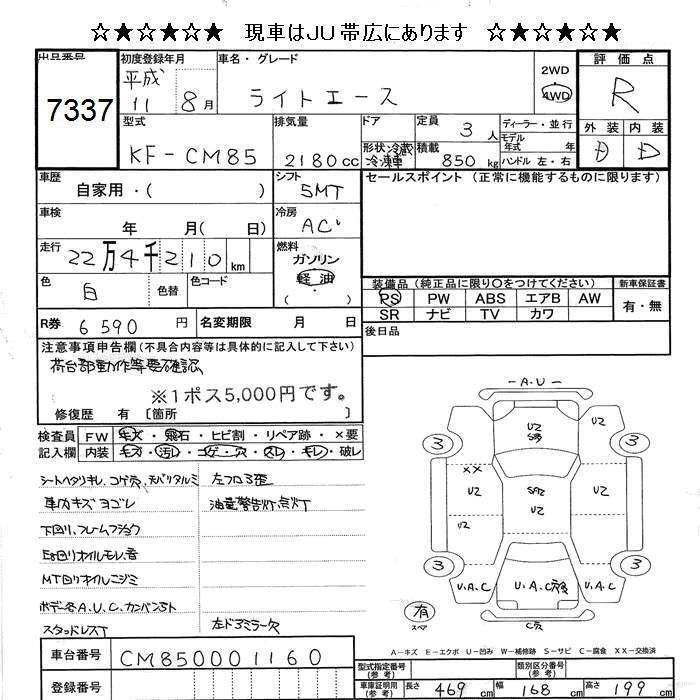 ☆★☆★☆★ 現車はJU帯広にあります ☆★☆★☆★
出品番号
7337
初度登録年月
平成
11 8月
車名・グレード
ライトエース
2WD
4WD
評価点
R
外装 内装
D D
型式
KF-CM85
排気量
2180cc
ドア
形状 冷蔵
冷凍車
定員
3人
積載
850kg
ディーラー・並行
モデル
年式 年
ハンドル 左・右
車歴
自家用・( )
シフト
5MT
セールスポイント (正常に機能するものに限ります)
車検
年 月( 日)
冷房
AC
走行
22万4千210km
燃料
ガソリン
軽油
( ・ )
色
白
色替
色コード
装備品 (純正品に限り○をつけてください)
新車保証書
PS PW ABS エアB AW
SR ナビ TV カワ
有・無
R券 6590円
名変期限 月 日
後日品
注意事項申告欄 (不具合内容等は具体的に記入して下さい)
荷台部動作等要確認
※1ポス5,000円です。
修復歴 有 〔箇所 〕
検査員
記入欄
FW キズ・飛石・ヒビ割・リペア跡・×要
内装 キズ・汚レ・コゲ・穴・スレ・キレ・破レ
シートヘタリキレ、コゲ穴、天バリタルミ
車内キズヨゴレ
下回り、フレームフショク
E/g回りオイルモレ、音
MT回りオイルニジミ
ボデー各A.U.C.カンバンSト
スタッドレスT
左フロア歪
油量警告灯点灯
左ドアミラー欠
-A.U-
UZ
UZ
3
3
XX
UZ
UZ
UZ
UZ
3
3
U.A.C
U.A.C
U.A.C
有
スペア
A-キズ E-エクボ U-凹み W-補修跡 S-サビ C-腐食 XX-交換済
車台番号
CM850001160
登録番号
型式指定番号
(参考)
類別区分番号
(参考)
車庫証明用
(参考)
長さ 469cm
幅 168cm
高さ 199cm